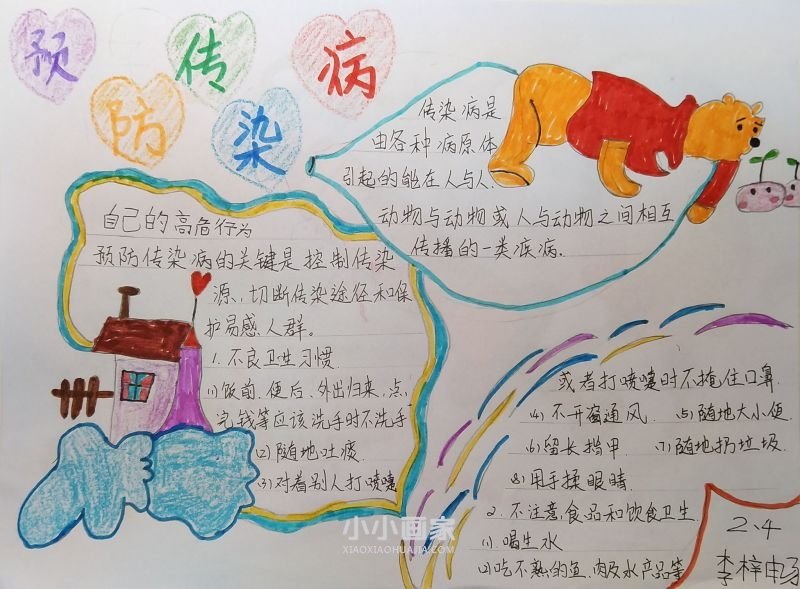 预防传染病
传染病是
由各种病原体
引起的能在人与人.
动物与动物或人与动物之间相互
传播的一类疾病.
自己的高危行为
预防传染病的关键是控制传染
源、切断传染途径和保
护易感人群。
1.不良卫生习惯.
(1)饭前、便后、外出归来、点
完钱等应该洗手时不洗手
(2)随地吐痰.
(3)对着别人打喷嚏
或者打喷嚏时不掩住口鼻.
(4)不开窗通风. (5)随地大小便.
(6)留长指甲. (7)随地扔垃圾.
(8)用手揉眼睛.
2.不注意食品和饮食卫生.
(1).喝生水
(2)吃不熟的鱼、肉及水产品等
2、4
李梓畅
小小画家
XIAOXIAOHUAJIA.COM